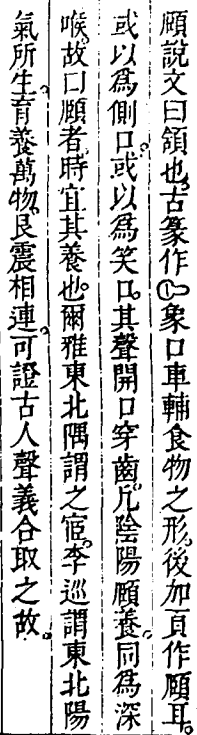 頥說文曰頷也。古篆作𦣝象口車輔食物之形。後加頁作頥耳。
或以爲側口。或以爲笑口。其聲開口穿齒。凡陰陽頥養。同爲深
喉。故口頥者。時宜其養也。爾雅東北隅謂之宧。李巡謂東北陽
氣所生。育養萬物。艮震相連。可證古人聲義合取之故。